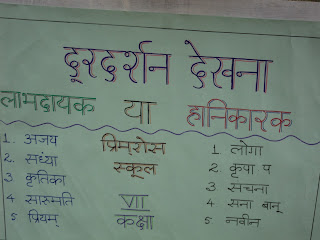 दूरदर्शन देखना
लाभदायक या हानिकारक
1. अजय प्रिमरोस 1 लोगा
2. सध्या स्कूल 2. कृपा प
3 कृतिका 3 सचना
4 सारुमति VII 4 सना बानू
5 प्रियम् कक्षा 5 नवीन